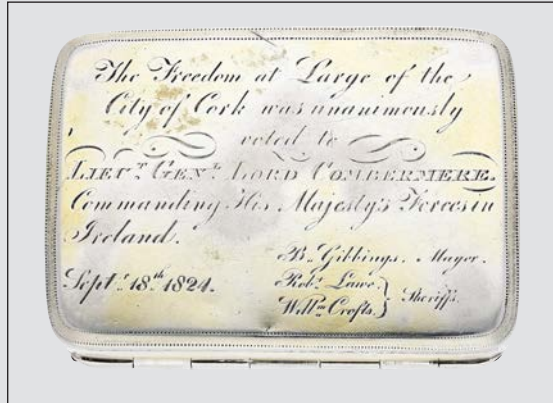 The Freedom at Large of the
City of Cork was unanimously
voted to
LIEUT. GENL. LORD COMBERMERE.
Commanding His Majesty's Forces in
Ireland.
Sept.r 18.th 1824.
Bn. Gibbings. Mayor.
Robt. Lawe.
Willm. Crofts.
Sheriffs